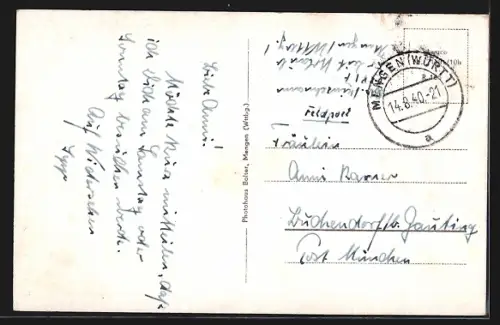 Liebe Anni!
Möchte kurz mitteilen, daß
ich Dich am Samstag oder
Sonntag besuchen werde.
Auf Wiedersehen
Sepp
Photohaus Balser, Mengen (Wttbg.)
Mengen/Wttbg.!
Feldpost
MENGEN (WÜRTT)
14.8.40.-21
a
Fräulein
Anni Karner
Buchendorf/b. Gauting
Post München